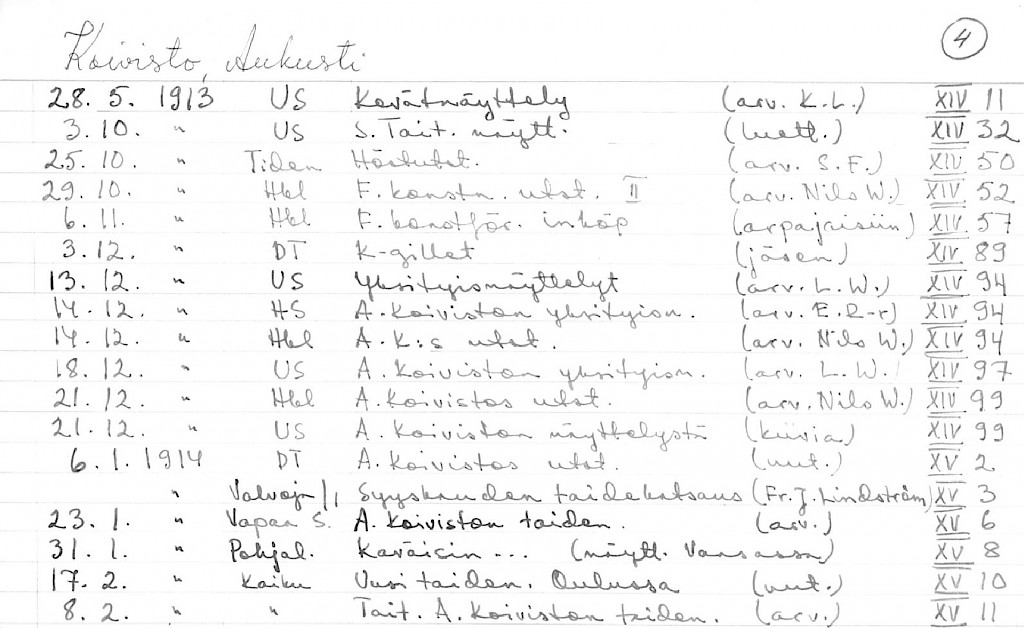 4
Koivisto, Aukusti
28. 5. 1913 US Kevätnäyttely (arv. K.L.) XIV 11
3. 10. " US S. Tait. näytt. (luett.) XIV 32
25. 10. " Tiden Höstutst. (arv. S.F.) XIV 50
29. 10. " Hbl F. konstn. utst. II (arv. Nils W.) XIV 52
6. 11. " Hbl F. konstför. inköp (arpajaisiin) XIV 57
3. 12. " DT K-gillet (jäsen) XIV 89
13. 12. " US Yksityisnäyttelyt (arv. L.W.) XIV 94
14. 12. " HS A. Koiviston yksityisn. (arv. E.R-r) XIV 94
14. 12. " Hbl A. K:s utst. (arv. Nils W.) XIV 94
18. 12. " US A. Koiviston yksityisn. (arv. L.W.) XIV 97
21. 12. " Hbl A. Koivistos utst. (arv. Nils W.) XIV 99
21. 12. " US A. Koiviston näyttelystä (kuvia) XIV 99
6. 1. 1914 DT A. Koivistos utst. (uut.) XV 2
" Valvoja/1, Syyskauden taidekatsaus (Fr. J. Lindström) XV 3
23. 1. " Vapaa S. A. Koiviston taiden. (arv.) XV 6
31. 1. " Pohjal. Kaväisin... (näytt. Vaasassa) XV 8
17. 2. " Kaiku Uusi taiden. Oulussa (uut.) XV 10
8. 2. " " Tait. A. Koiviston taiden. (arv.) XV 11